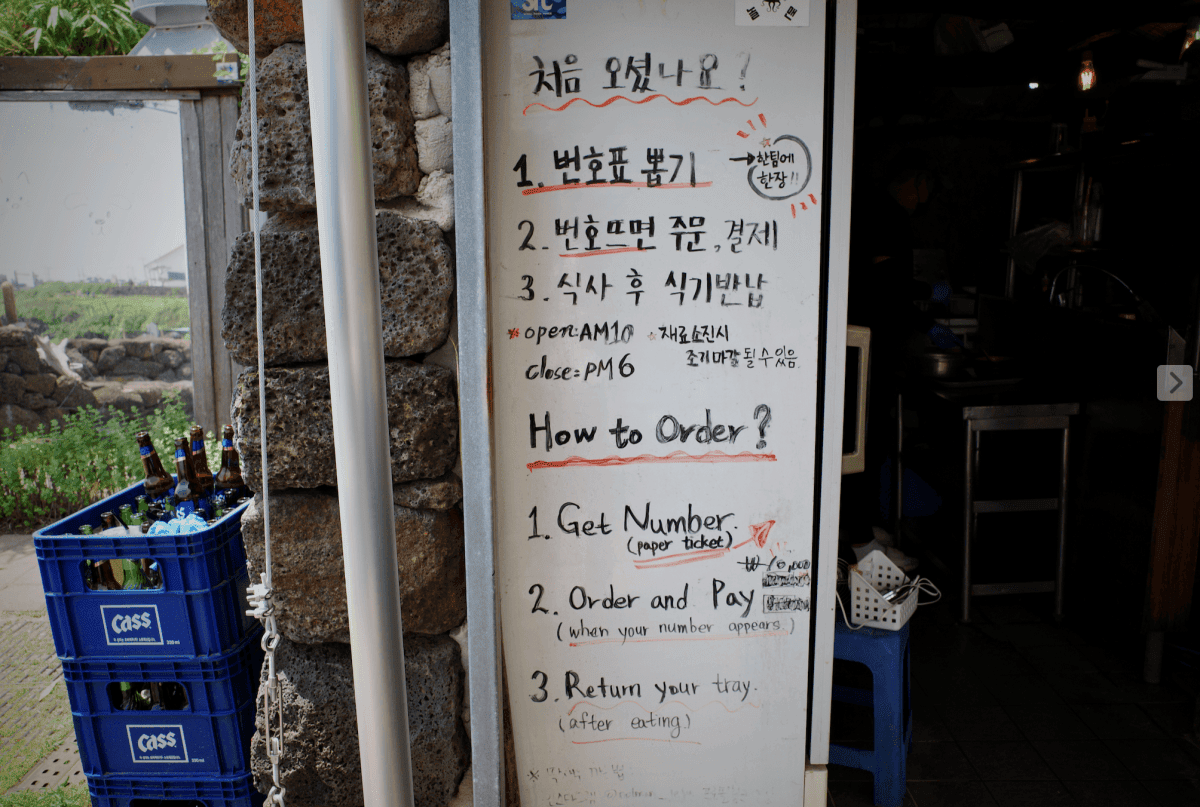 처음 오셨나요?
1. 번호표 뽑기
→한팀에
한장!!
2. 번호뜨면 주문, 결제
3. 식사 후 식기반납
* open:AM10
close:PM6
재료소진시
조기마감 될 수 있음
How to Order?
1. Get Number.
(paper ticket)
2. Order and Pay
(when your number appears.)
3. Return your tray.
(after eating)
cass
cass